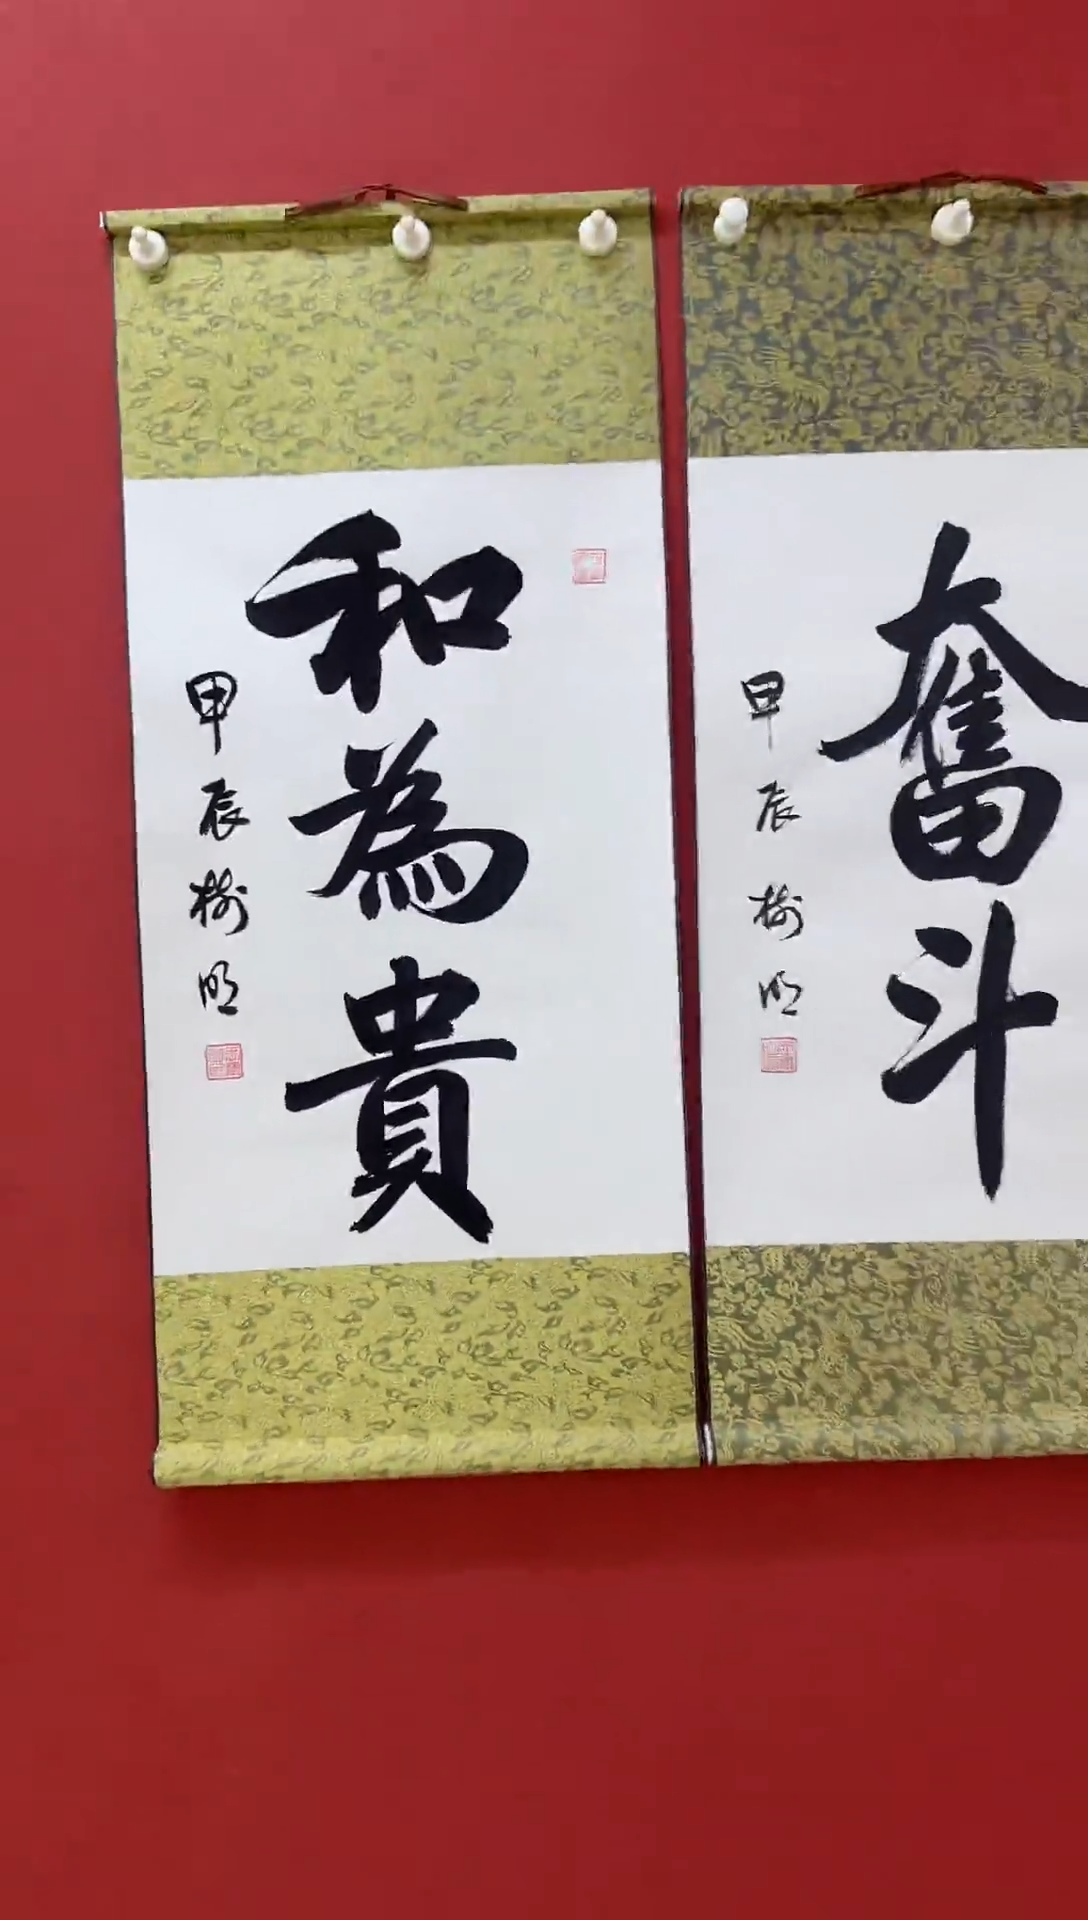 和為貴
甲辰樹明
奮斗
甲辰樹明